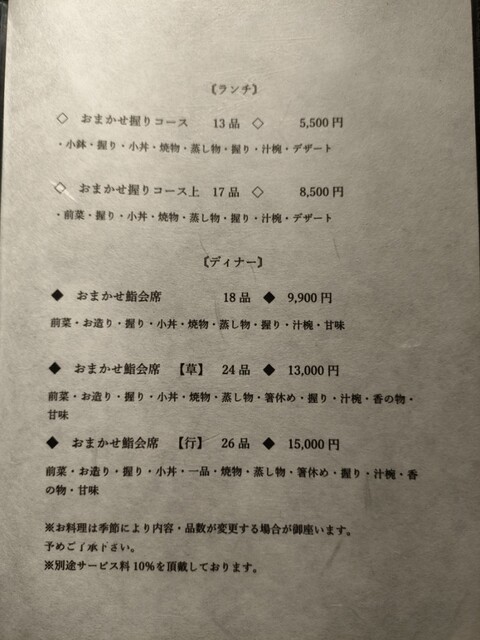 〔ランチ〕
◇ おまかせ握りコース 13品 ◇ 5,500円
・小鉢・握り・小丼・焼物・蒸し物・握り・汁椀・デザート
◇ おまかせ握りコース上 17品 ◇ 8,500円
・前菜・握り・小丼・焼物・蒸し物・握り・汁椀・デザート
〔ディナー〕
◆ おまかせ鮨会席 18品 ◆ 9,900円
前菜・お造り・握り・小丼・焼物・蒸し物・握り・汁椀・甘味
◆ おまかせ鮨会席 【草】 24品 ◆ 13,000円
前菜・お造り・握り・小丼・焼物・蒸し物・箸休め・握り・汁椀・香の物・
甘味
◆ おまかせ鮨会席 【行】 26品 ◆ 15,000円
前菜・お造り・握り・小丼・一品・焼物・蒸し物・箸休め・握り・汁椀・香
の物・甘味
※お料理は季節により内容・品数が変更する場合が御座います。
予めご了承下さい。
※別途サービス料10%を頂戴しております。